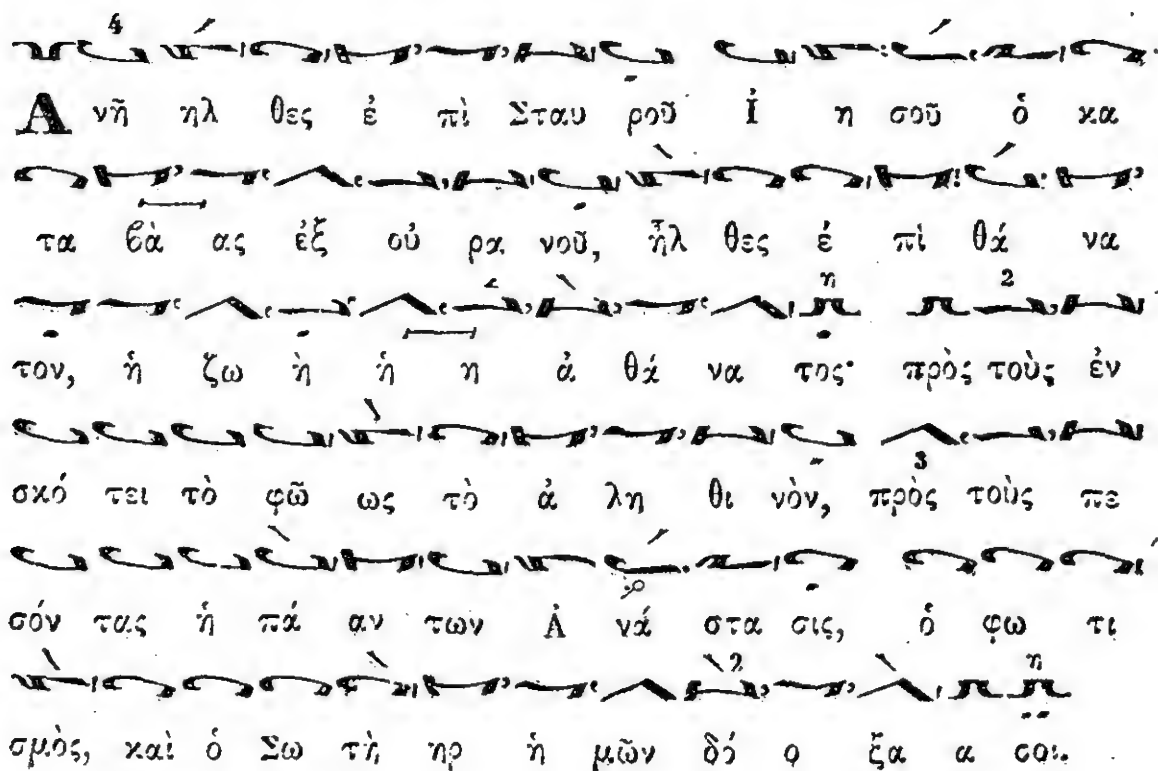 4
Α νῆ ηλ θες ἐ πὶ Σταυ ροῦ Ἰ η σοῦ ὁ κα
τα βὰ ας ἐξ οὐ ρα νοῦ, ἦλ θες ἐ πὶ θά να
2 η 2
τον, ἡ ζω ὴ ἡ η ἀ θά να τος· πρὸς τοὺς ἐν
σκό τει τὸ φῶ ως τὸ ἀ λη θι νὸν, πρὸς τοὺς πε
3
σόν τας ἡ πά αν των Ἀ νά στα σις, ὁ φω τι
2 η
σμὸς, καὶ ὁ Σω τὴ ηρ ἡ μῶν δό ο ξα α σοι.